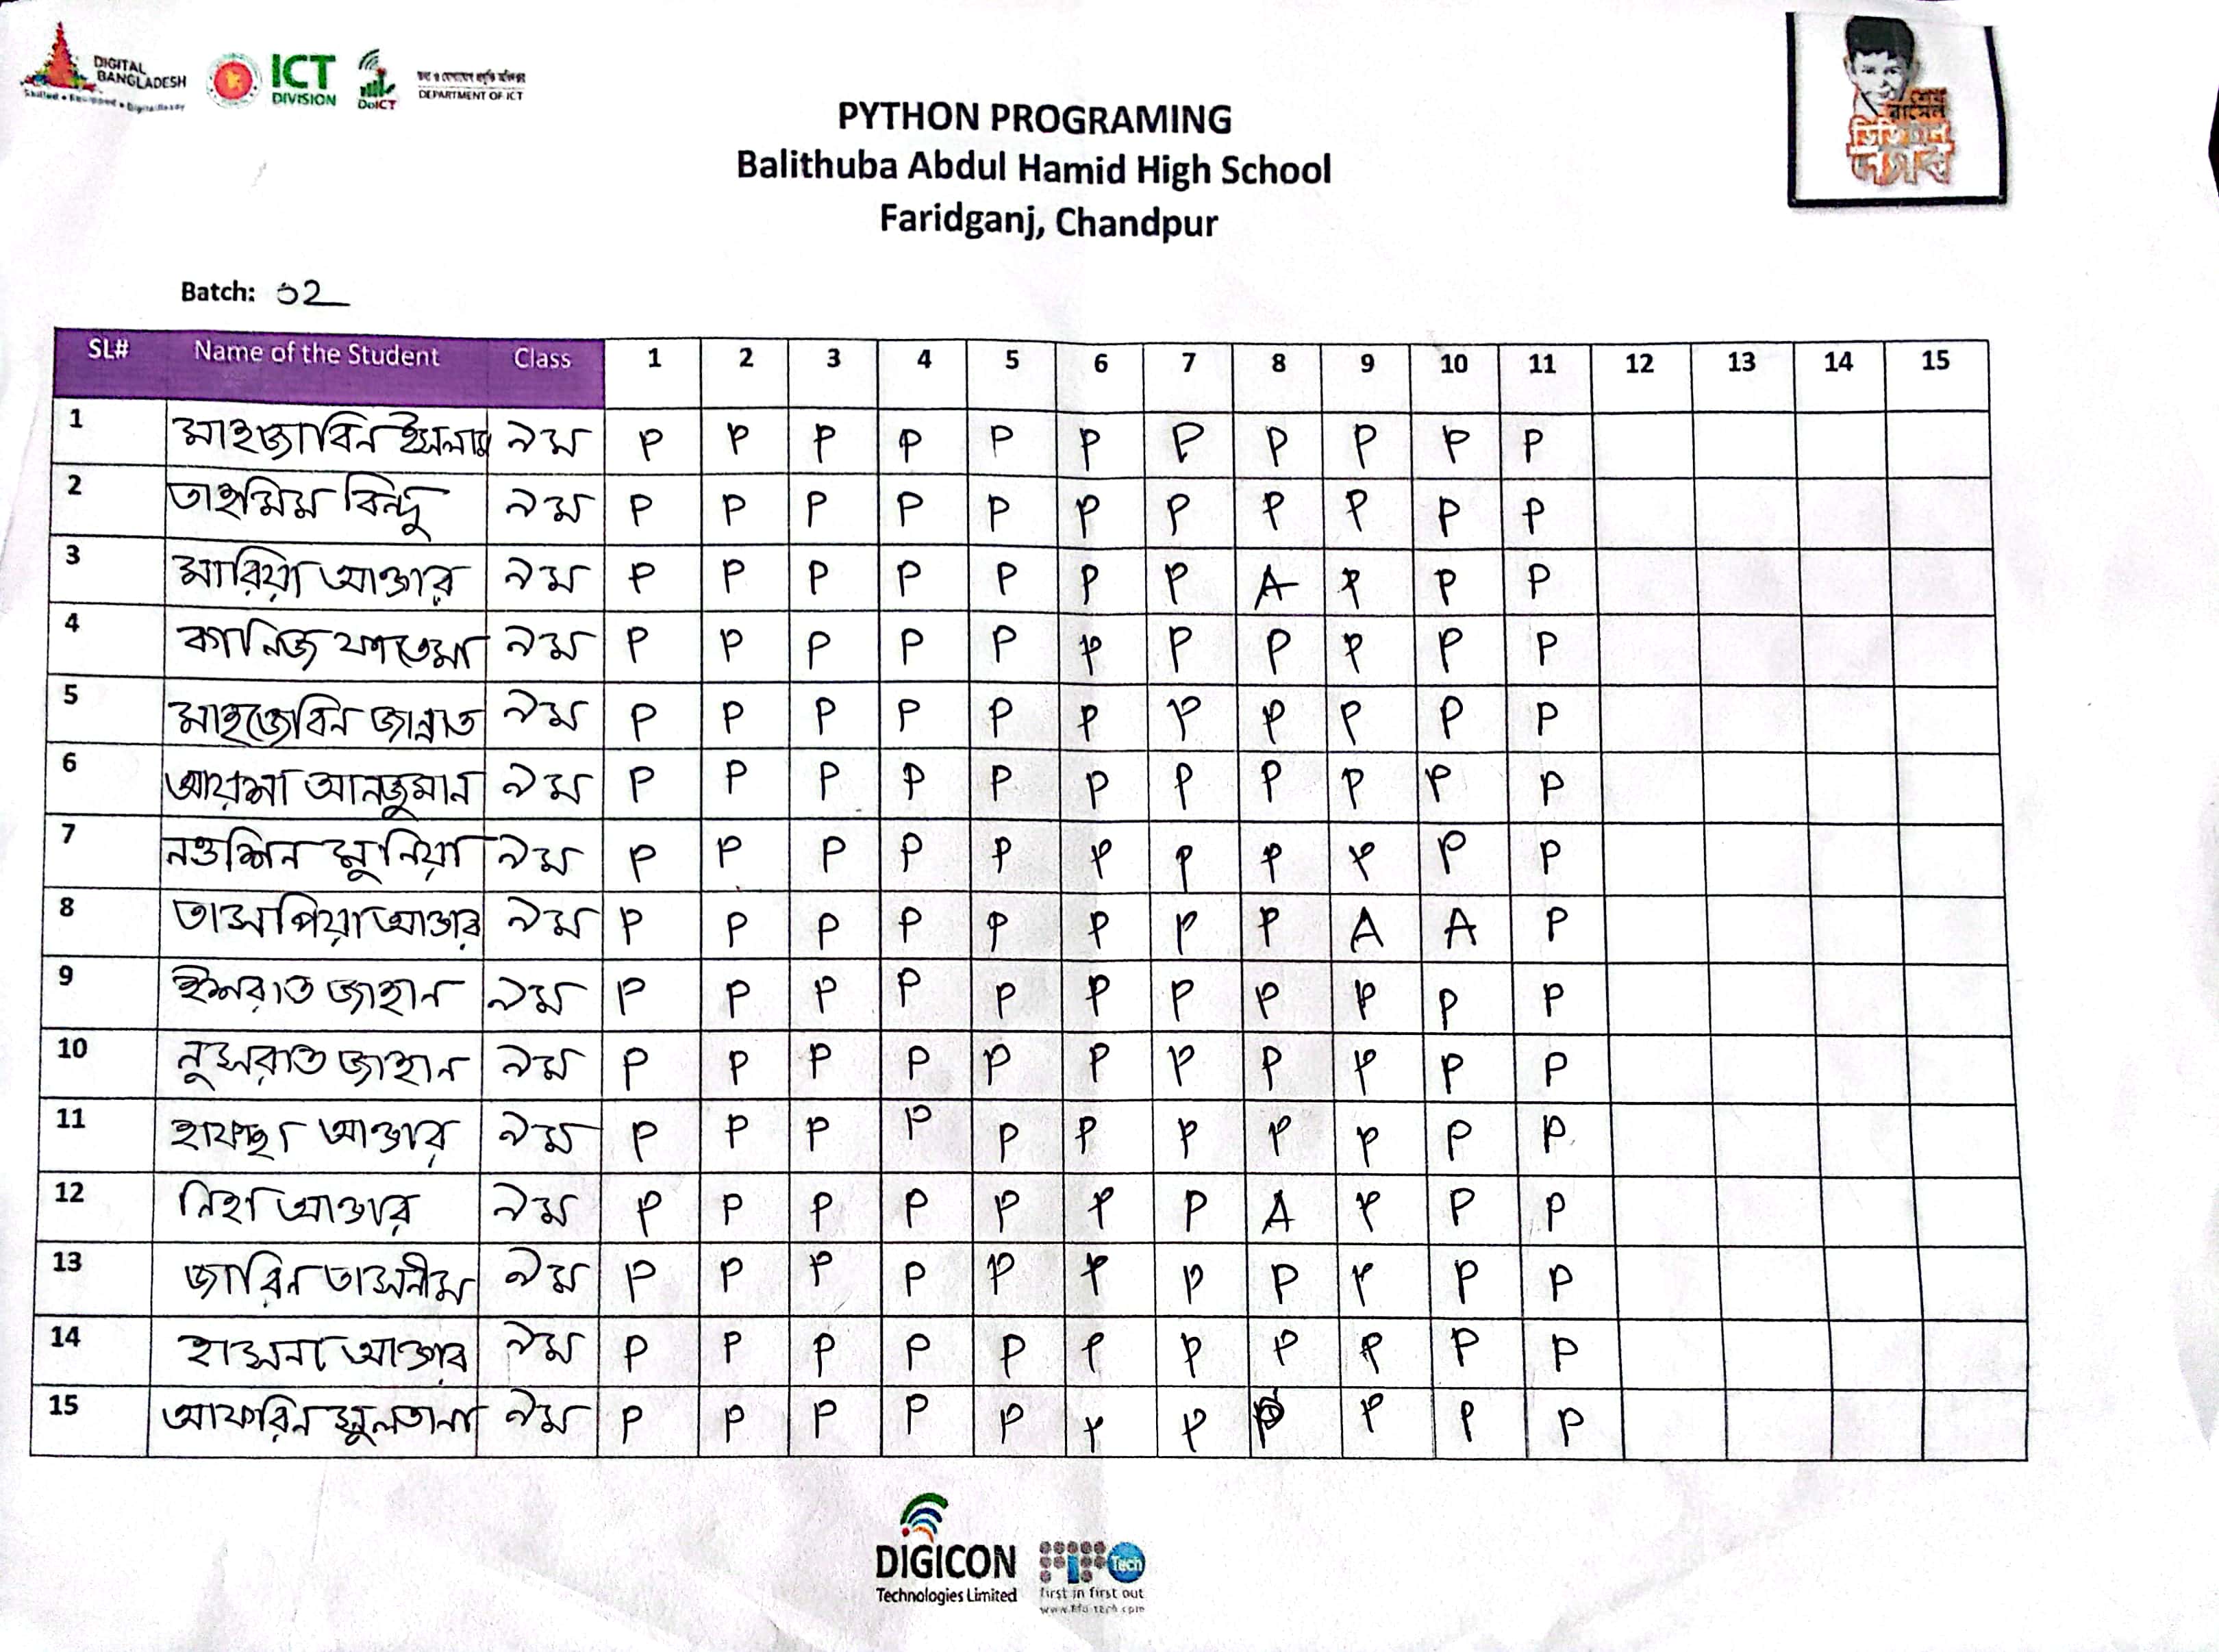 DIGITAL
BANGLADESH
ICT
DIVISION
DoICT
DEPARTMENT OF ICT
শেখ
রাসেল
PYTHON PROGRAMING
Balithuba Abdul Hamid High School
Faridganj, Chandpur
Batch: 02
SL# Name of the Student Class 1 2 3 4 5 6 7 8 9 10 11 12 13 14 15
1 মাহজাবিন ইসলাম ৯ম P P P P P P P P P P P
2 তাহমিম বিন্দু ৯ম P P P P P P P P P P P
3 মারিয়া আক্তার ৯ম P P P P P P P A P P P
4 কানিজ ফাতেমা ৯ম P P P P P P P P P P P
5 মাহজেবিন জান্নাত ৯ম P P P P P P P P P P P
6 আয়শা আনজুমান ৯ম P P P P P P P P P P P
7 নওশিন মুনিয়া ৯ম P P P P P P P P P P P
8 তাসপিয়া আক্তার ৯ম P P P P P P P P A A P
9 ইশরাত জাহান ৯ম P P P P P P P P P P P
10 নুসরাত জাহান ৯ম P P P P P P P P P P P
11 হাফছা আক্তার ৯ম P P P P P P P P P P P
12 নিহা আক্তার ৯ম P P P P P P P A P P P
13 জারিন তাসনীম ৯ম P P P P P P P P P P P
14 হাসনা আক্তার ৯ম P P P P P P P P P P P
15 আফরিন সুলতানা ৯ম P P P P P P P P P P P
DIGICON
Technologies Limited
Tech
first in first out